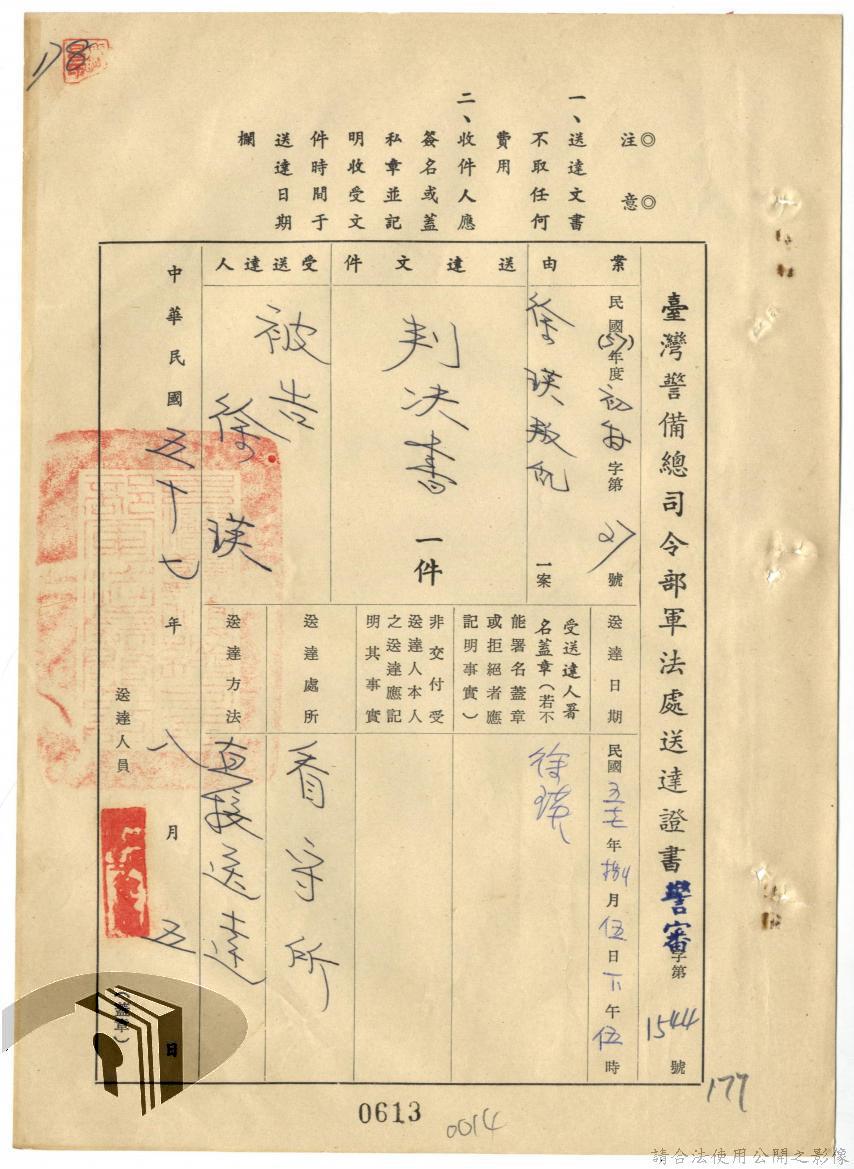 178
◎注意◎
一、送達文書
不取任何
費用
二、收件人應
簽名或蓋
私章並記
明收受文
件時間于
送達日期
欄
臺灣警備總司令部軍法處送達證書 警審字第1544號
案由
民國(57)年度初字第27號
徐瑛叛亂一案
送達文件
判决書一件
受送達人
被告
徐瑛
送達日期
民國五七年捌月伍日下午伍時
受送達人署
名蓋章(若不
能署名蓋章
或拒絕者應
記明事實)
徐瑛
非交付受
送達人本人
之送達應記
明其事實
送達處所
看守所
送達方法
直接送達
中華民國五十七年八月五日
送達人員
(蓋章)
177
0613
0014
請合法使用公開之影像